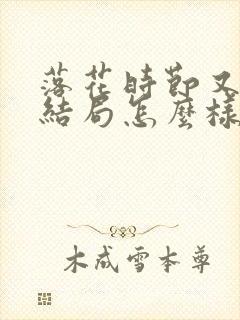 落花時節又
結局怎麼樣
木成雪本尊